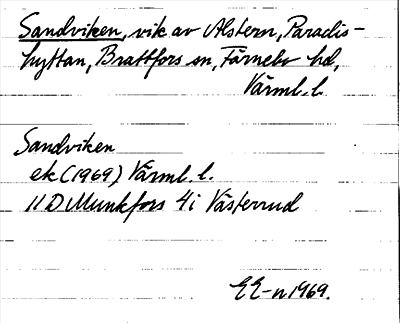 Sandviken, vik av Alstern, Paradis-
hyttan, Brattfors sn, Färnebo hd,
Värml. l.
Sandviken
ek (1969) Värml. l.
11 D Munkfors 4i Västerrud
EE-n 1969.